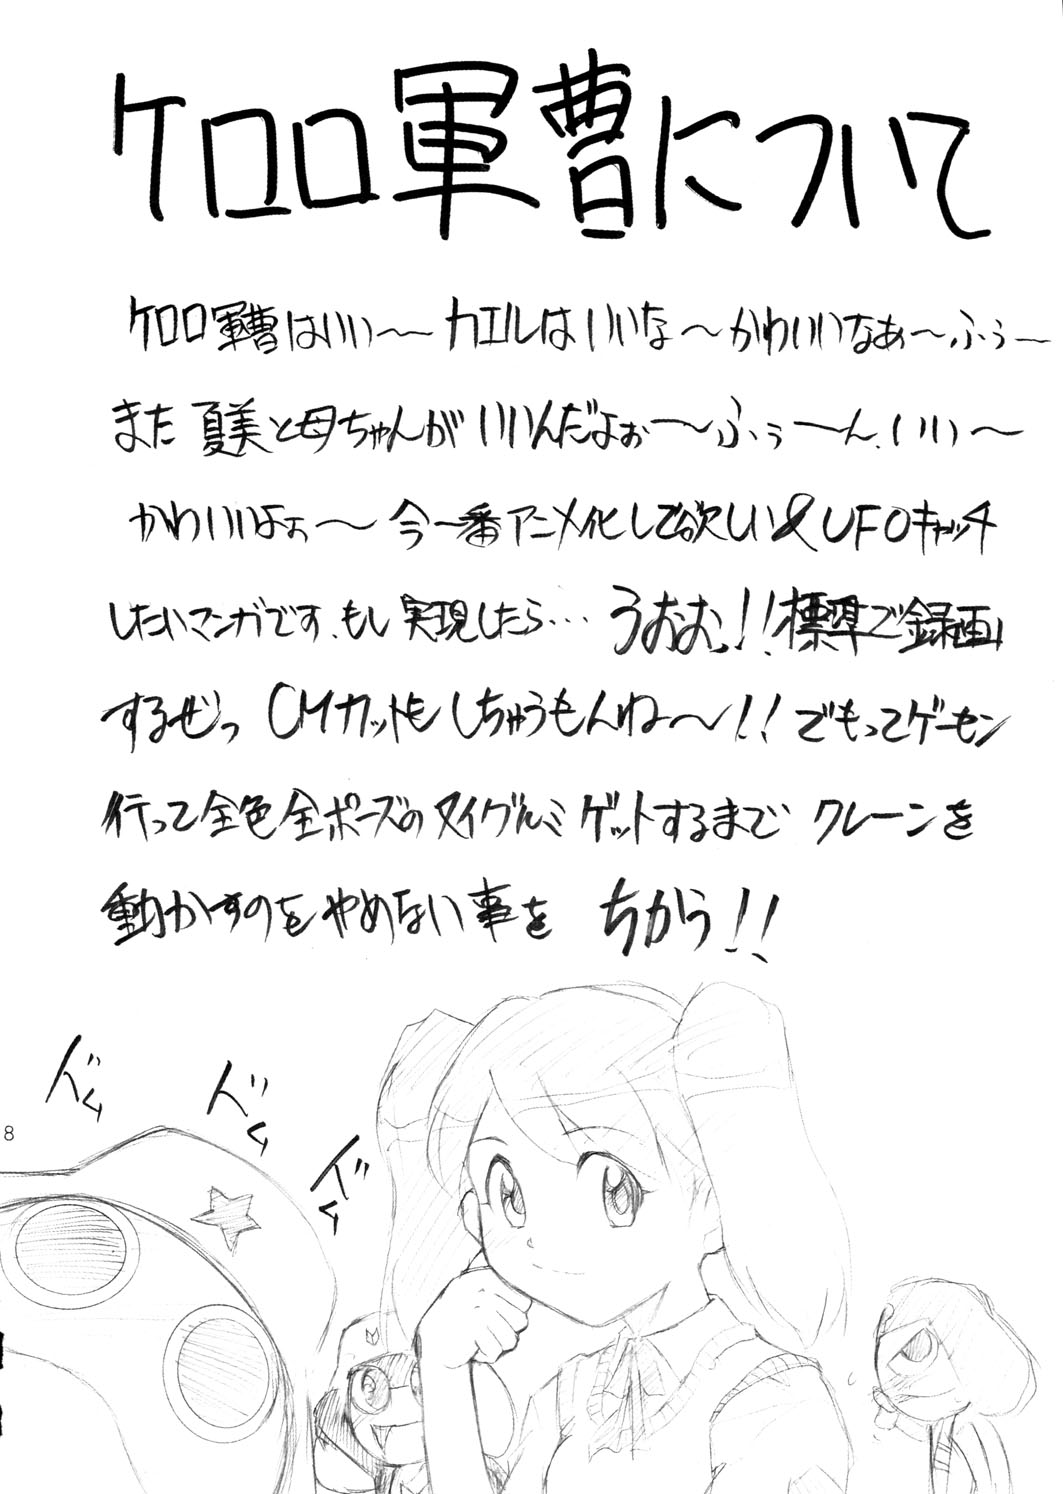 ケロロ軍曹について
ケロロ軍曹はいい〜カエルはいいな〜かわいいなぁ〜ふぅ〜
また夏美と母ちゃんがいいんだよぉ〜ふぅ〜ん、いい〜
かわいいよぉ〜今一番アニメ化して欲しい&UFOキャッチ
したいマンガです、もし実現したら…うおお!!標準で録画
するぜっCMカットもしちゅうもんね〜!!でもってゲーセン
行って全色全ポーズのヌイグルミゲットするまでクレーンを
動かすのをやめない事をちかう!!
ドム
ドム
ドム
8